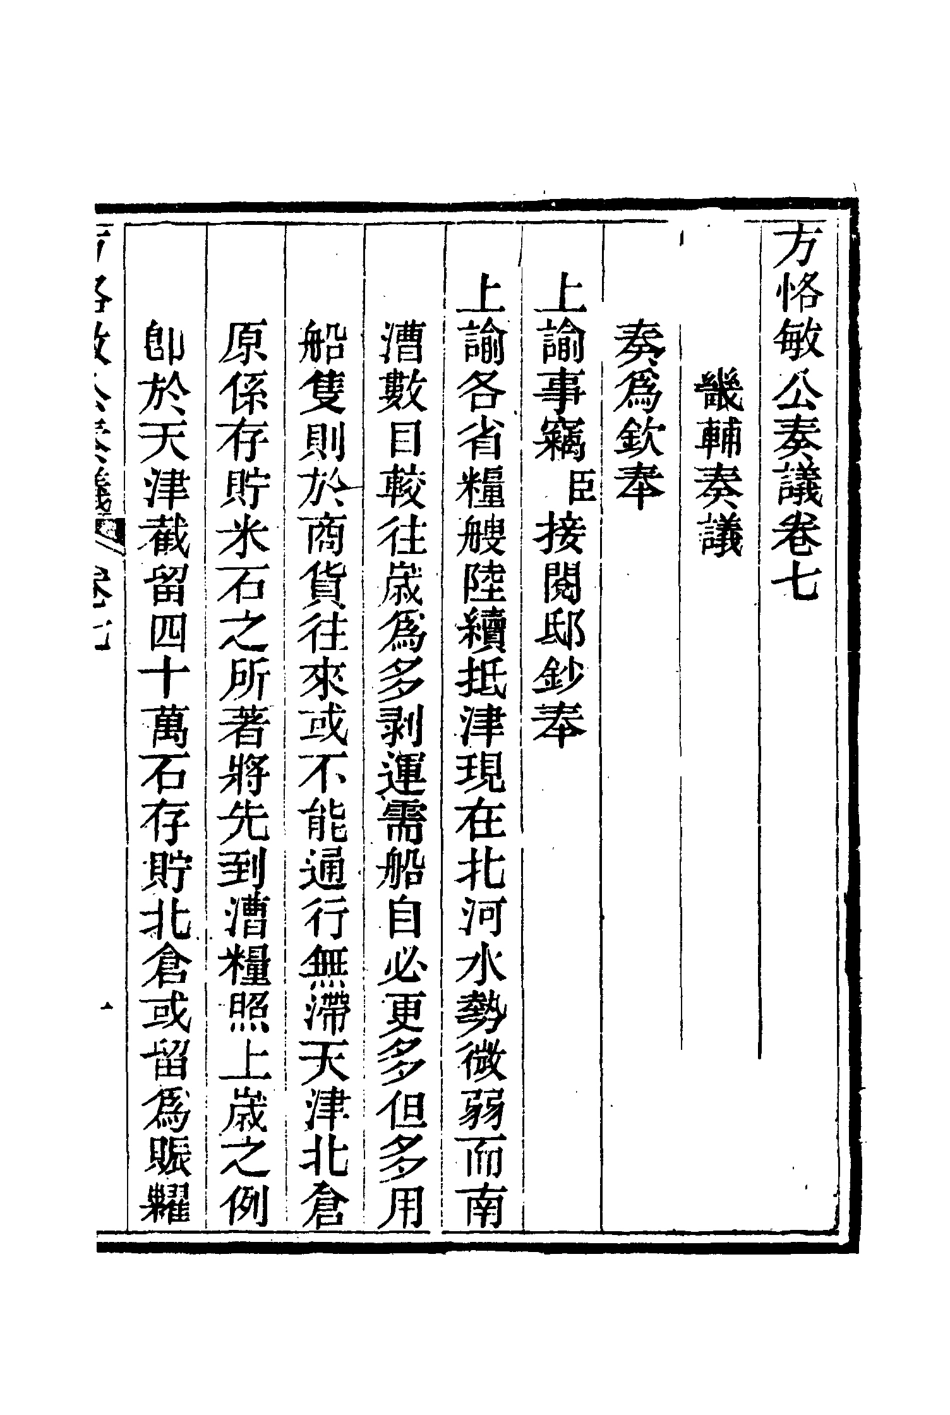 方恪敏公奏議卷七
畿輔奏議
奏爲欽奉
上諭事竊臣接閱邸鈔奉
上諭各省糧艘陸續抵津現在北河水勢微弱而南
漕數目較往歲爲多剥運需船自必更多但多用
船隻則於商貨往來或不能通行無滯天津北倉
原係存貯米石之所著將先到漕糧照上歲之例
卽於天津截留四十萬石存貯北倉或留爲賑糶
方恪敏公奏議 卷七 一